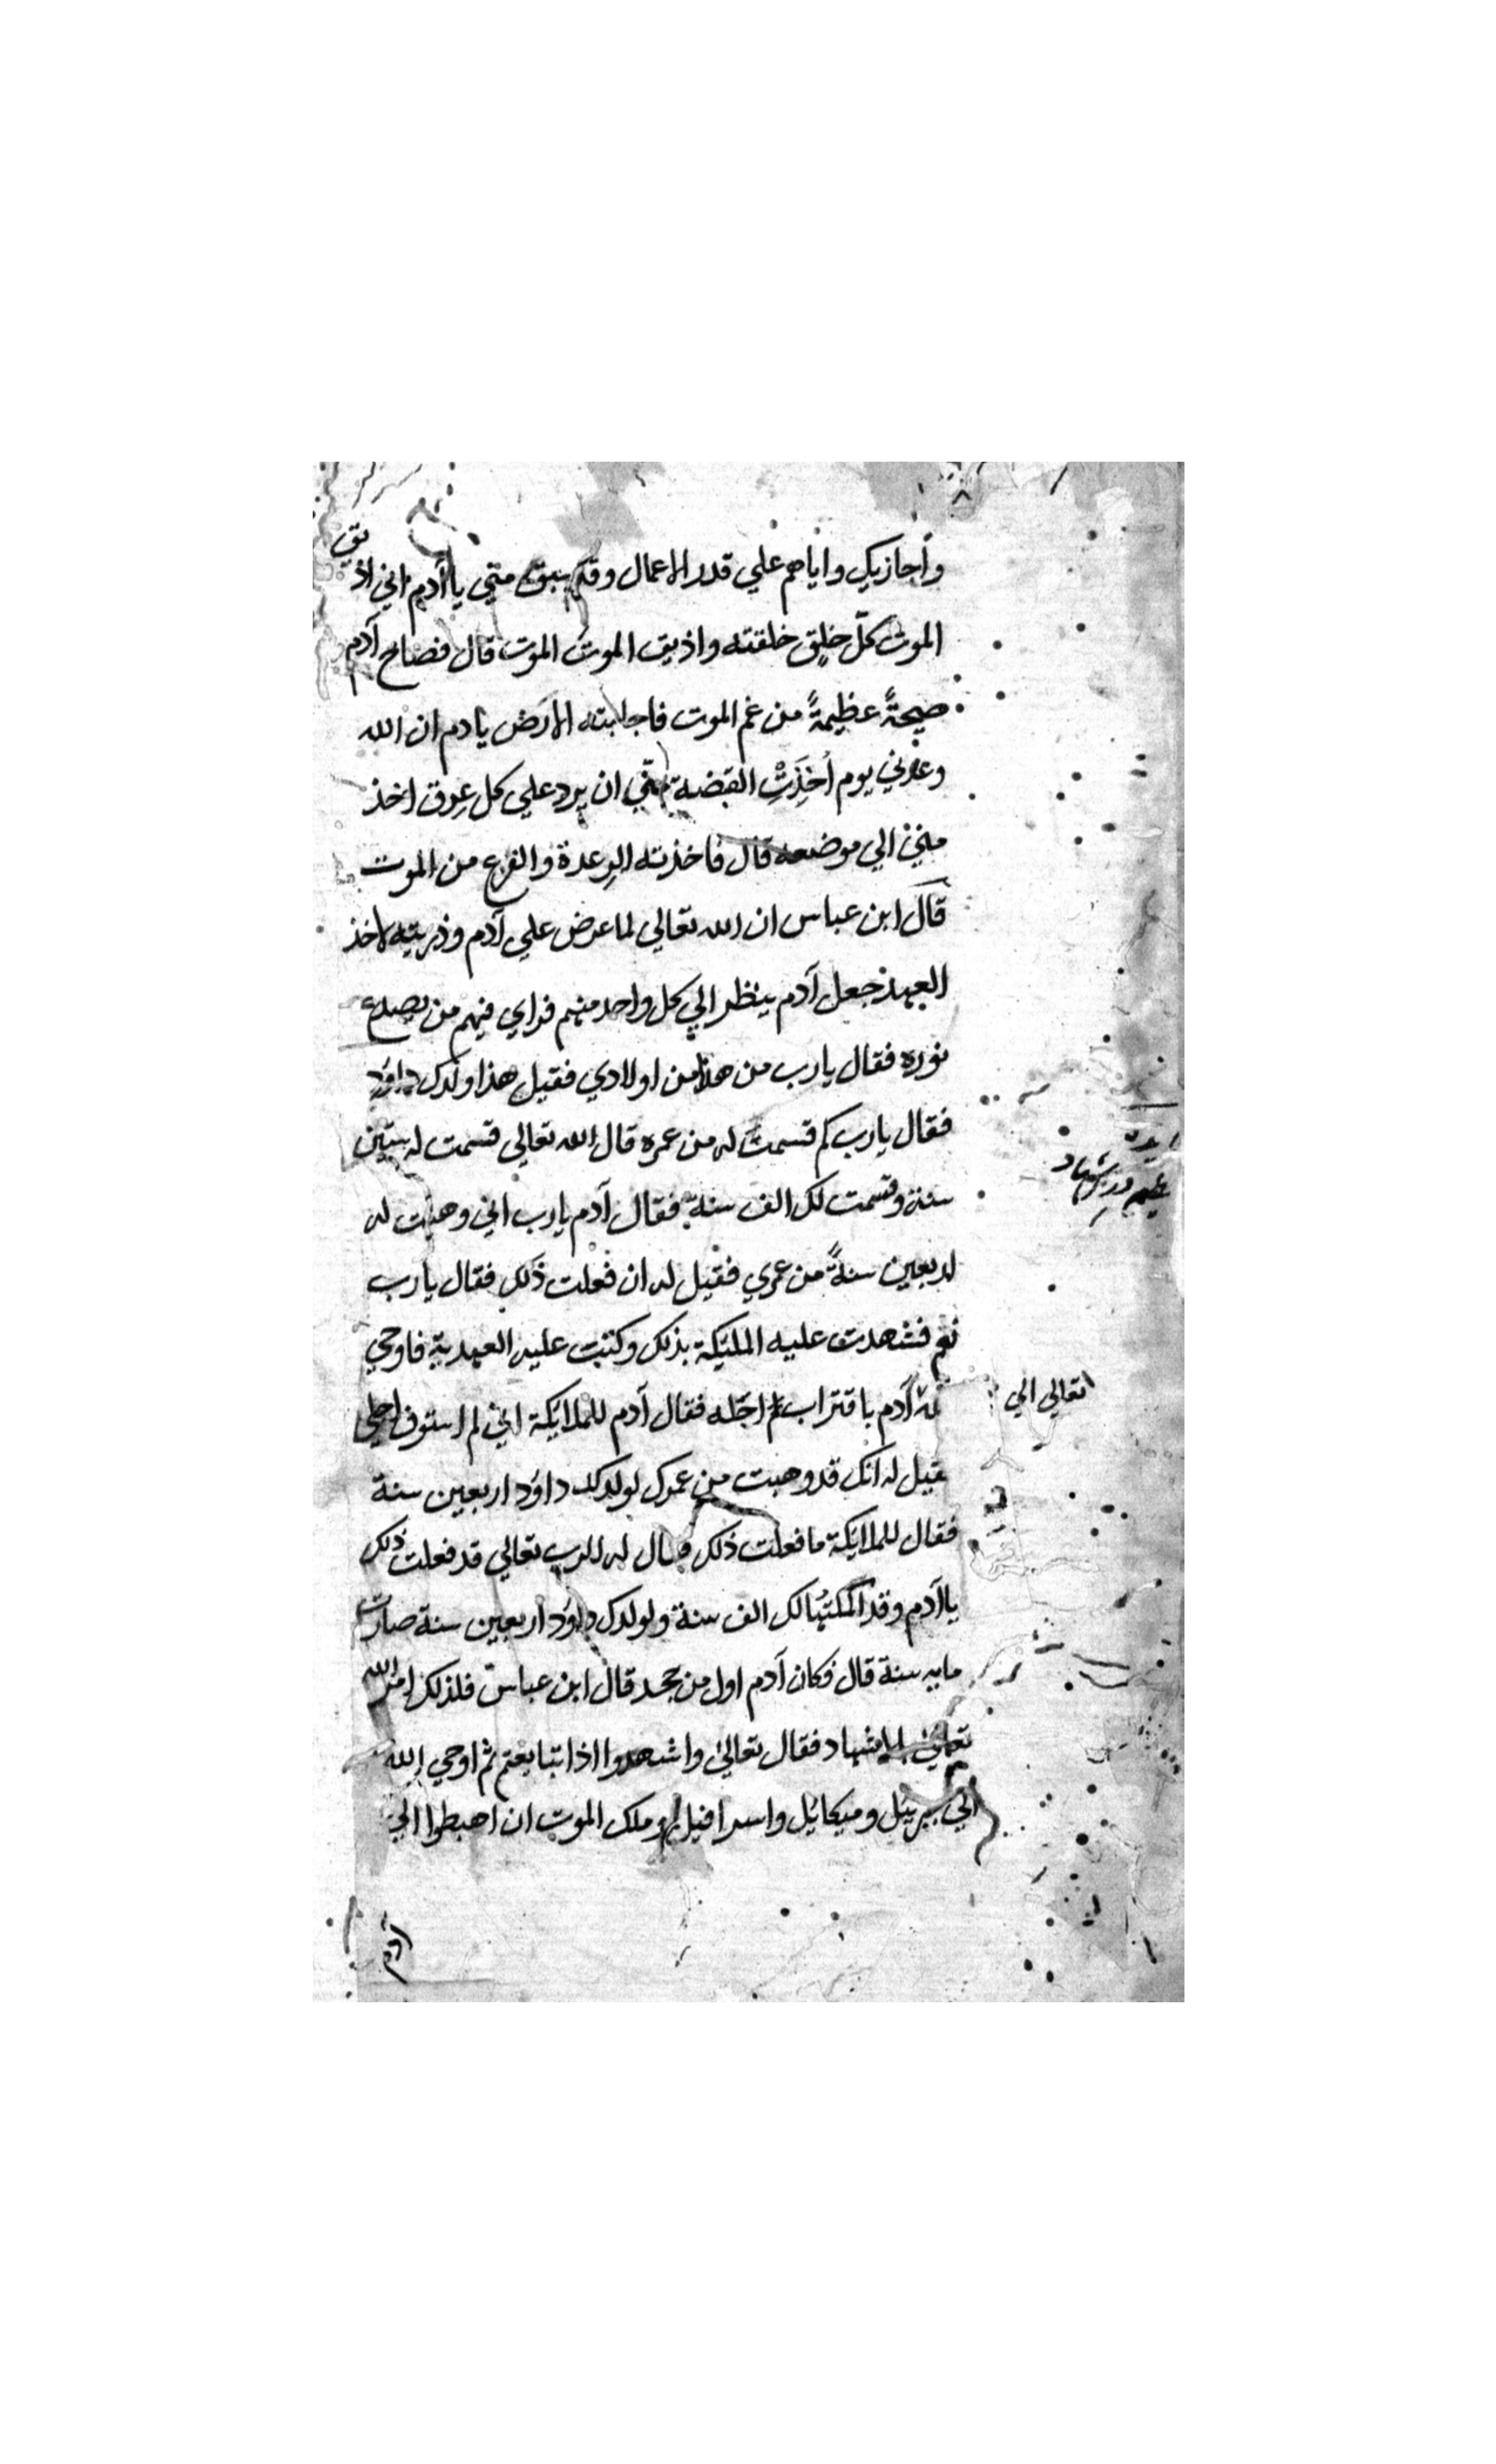 وأجازيك واياهم علي قدر الاعمال وقد سبق مني يا آدم اني اذيق
الموت كلّ خلق خلقته واذيق الموت الموت قال فصاح آدم
صيحةً عظيمةً من غم الموت فاجابته الارض يادم ان الله
وعدني يوم أخذت القبضة مني ان يرد علي كل عرق اخذ
مني الي موضعه قال فاخذته الرعدة والفزع من الموت
قال ابن عباس ان الله تعالي لما عرض علي آدم وذريته لاخذ
العهد جعل آدم ينظر الي كل واحد منهم فراي فيهم من يصدع
نوره فقال يارب من هذا من اولادي فقيل هذا ولدك داود
فقال يارب كم قسمت له من عمره قال الله تعالي قسمت له ستين
سنة وقسمت لك الف سنة فقال آدم يارب اني وهبت له
اربعين سنةً من عمري فقيل له ان فعلت ذلك فقال يارب
نعم فشهدت عليه المليكة بذلك وكتبت عليه العهدية فاوحي
تعالي الي
آدم باقتراب اجله فقال آدم للملايكة اني لم استوف اجلي
فقيل له انك قد وهبت من عمرك لولدك داود اربعين سنة
فقال للملايكة ما فعلت ذلك فقال له الرب تعالي قد فعلت ذلك
يا آدم وقد اكملتها لك الف سنة ولولدك داود اربعين سنة صارت
مايه سنة قال فكان آدم اول من جحد قال ابن عباس فلذلك امر الله
تعالي بالاشهاد فقال تعالي واشهدوا اذا تبايعتم ثم اوحي الله
الي جبرييل وميكائيل واسرافيل وملك الموت ان اهبطوا الي
آدم